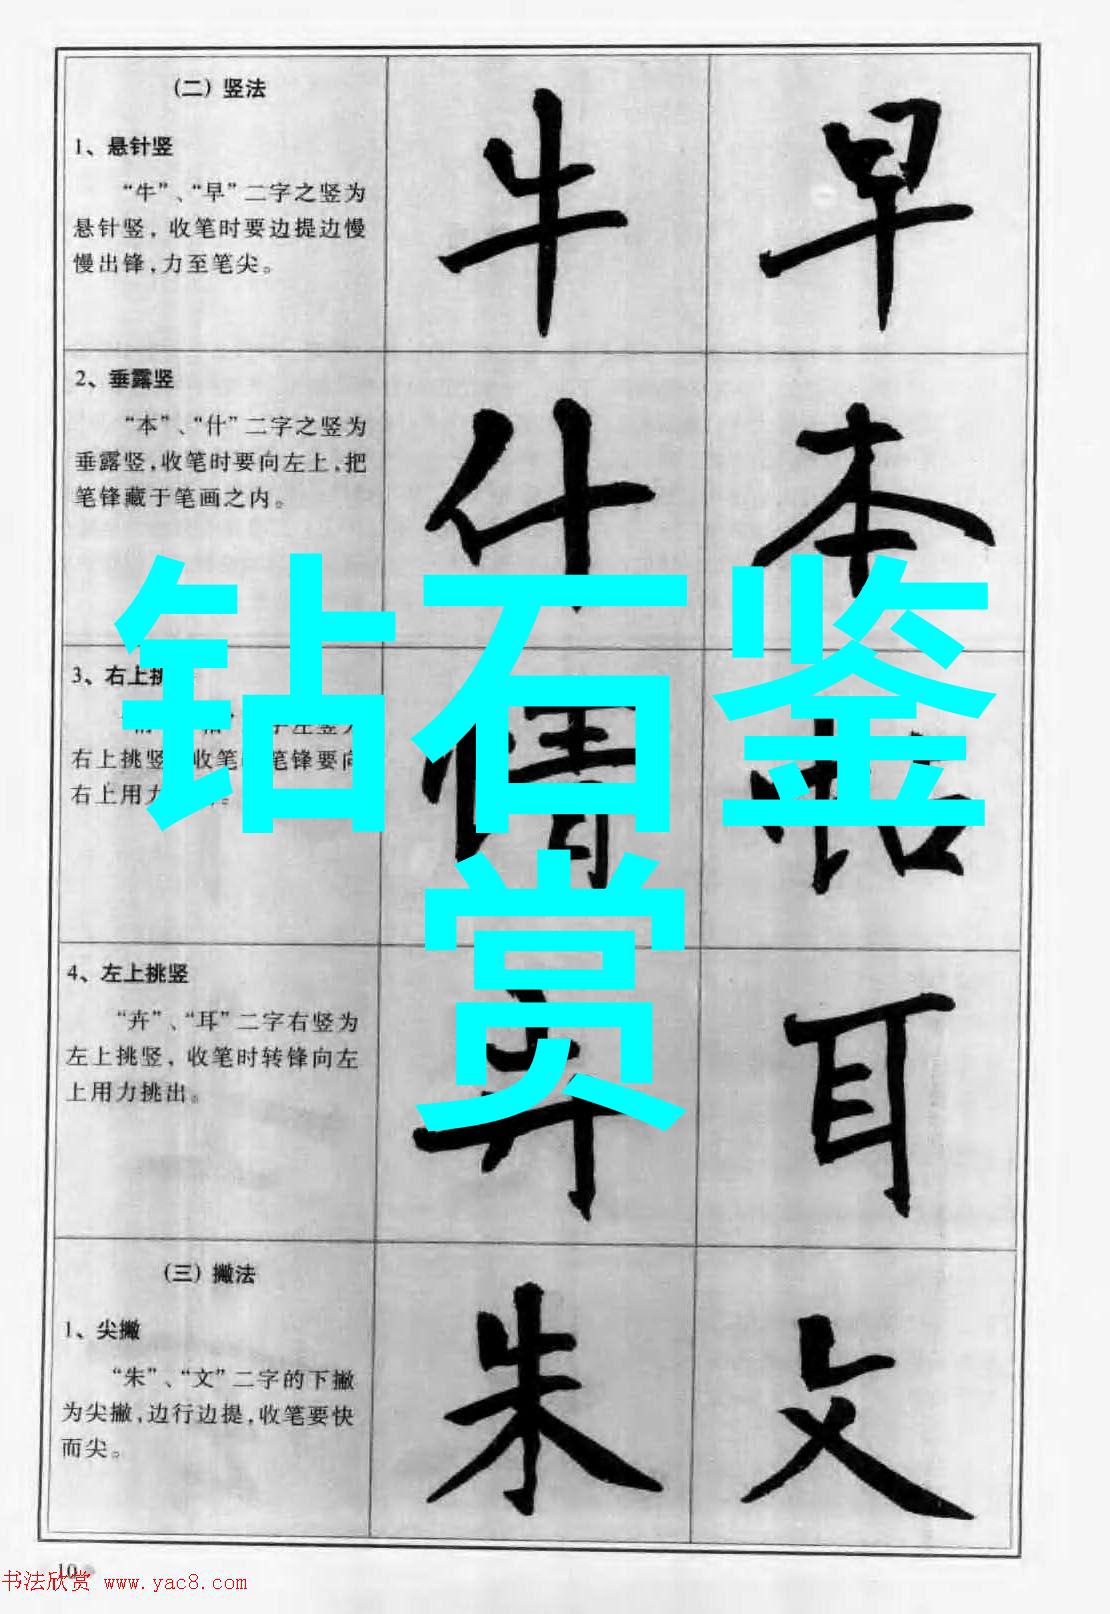 (二) 竖法
1、悬针竖
“牛”、“早”二字之竖为
悬针竖，收笔时要边提边慢
慢出锋，力至笔尖。
牛
早
2、垂露竖
“本”、“什”二字之竖为
垂露竖，收笔时要向左上，把
笔锋藏于笔画之内。
什
本
钻石鉴
赏
3、右上挑
右上挑竖 收笔 笔锋要向
右上用力
情
帖
4、左上挑竖
“卉”、“耳”二字右竖为
左上挑竖，收笔时转锋向左
上用力挑出。
耳
(三) 撇法
1、尖撇
“朱”、“文”二字的下撇
为尖撇，边行边提，收笔要快
而尖。
朱
文
10
书法欣赏 www.yac8.com